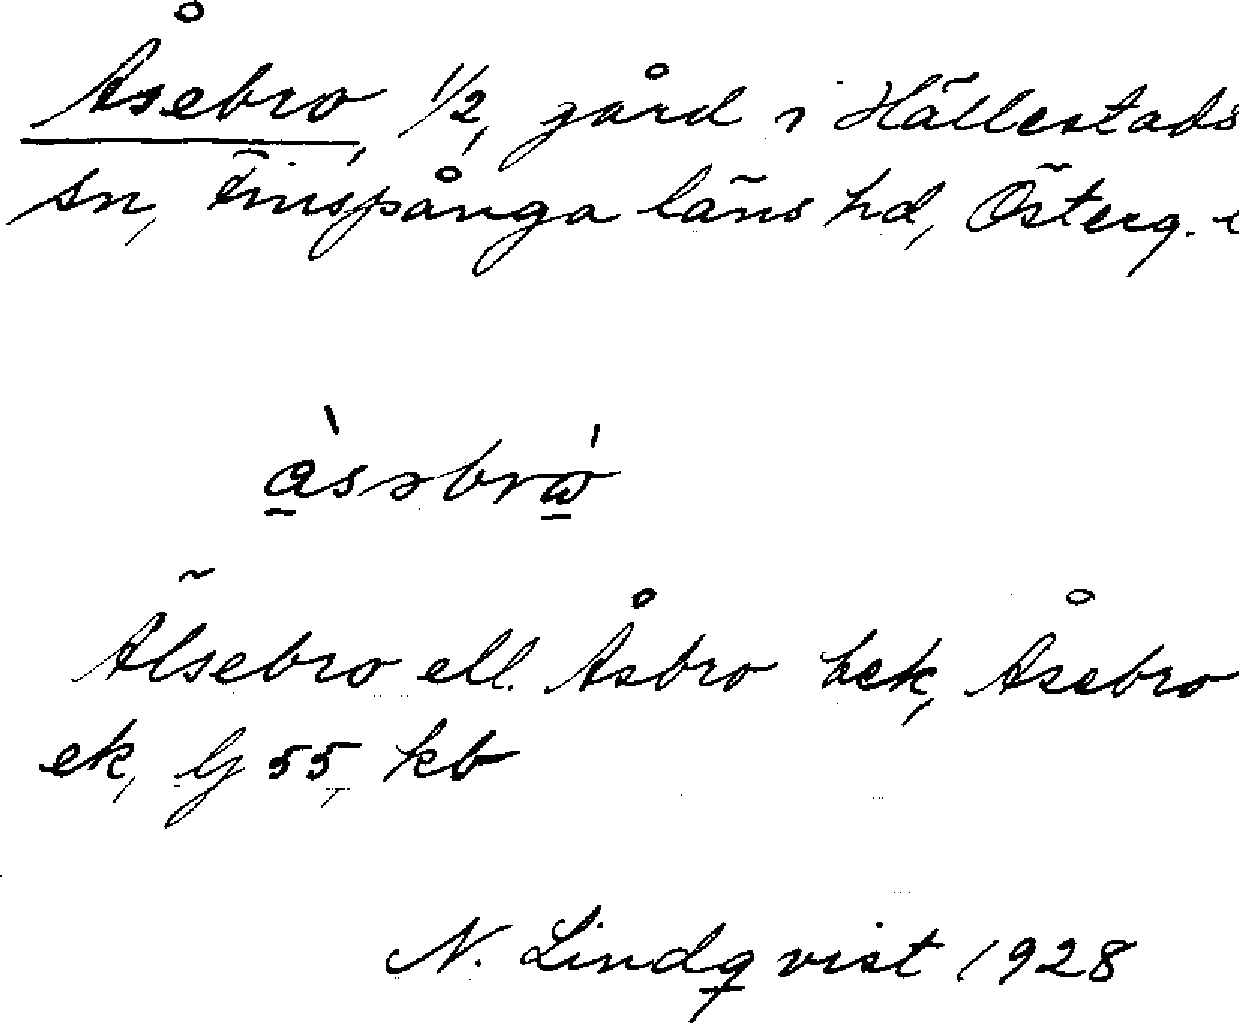 Åsebro, 1/2, gård i Hällestads
sn, Finspånga läns hd, Österg.
Älsebro ell. Åsbro hek, Åsebro
ek, G 55, kb
N. Lindqvist 1928